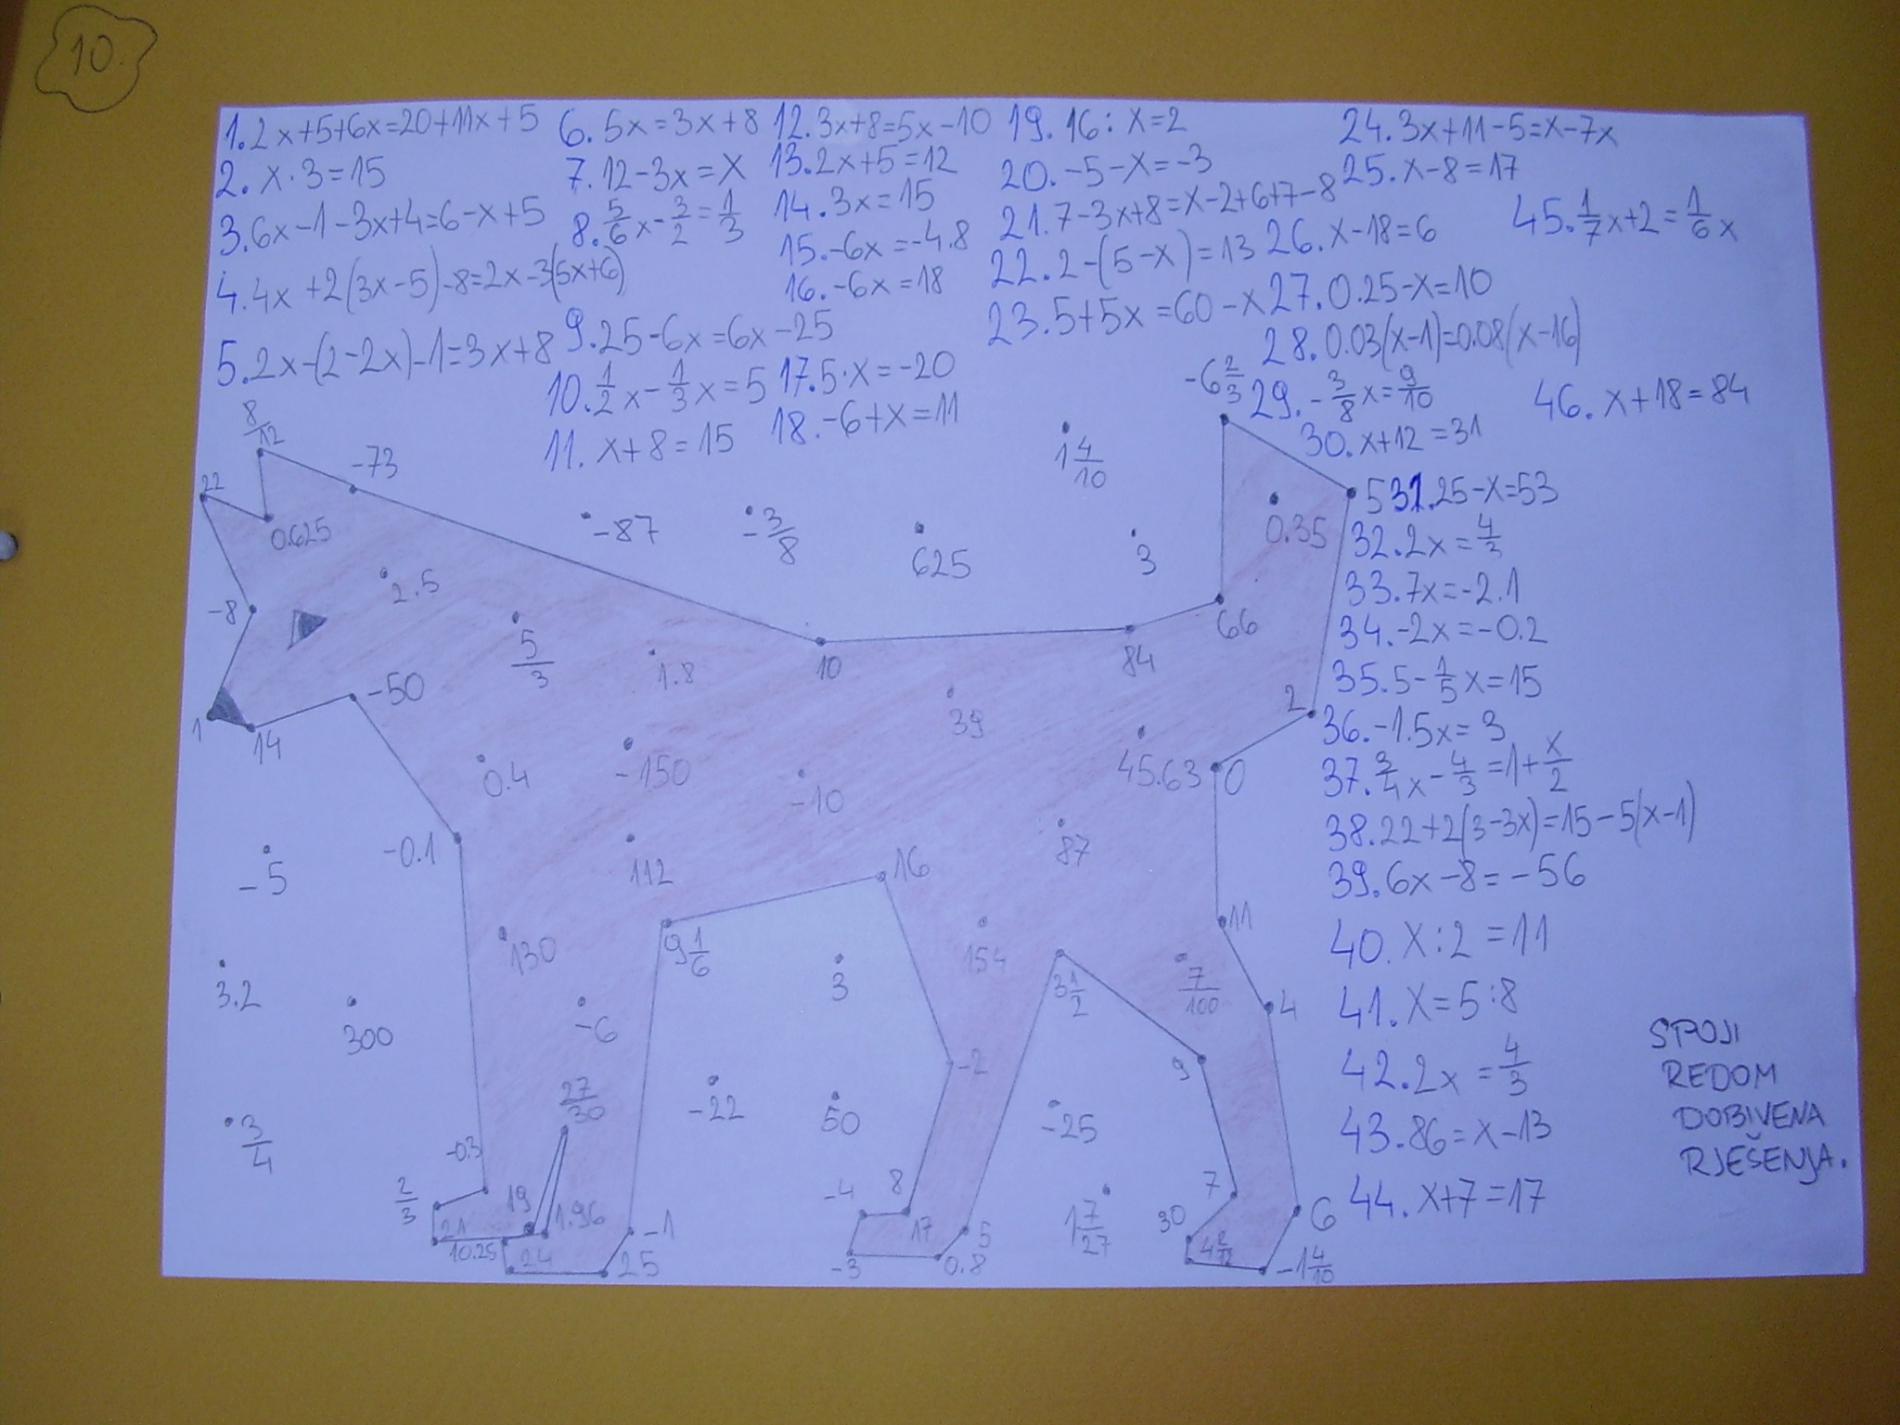 10.
1. 2x+5+6x=20+11x+5
2. x·3=15
3. 6x-1-3x+4=6-x+5
4. 4x+2(3x-5)-8=2x-3(5x+6)
5. 2x-(2-2x)-1=3x+8
6. 5x=3x+8
7. 12-3x=x
8. 5/6x-3/2=1/3
9. 25-6x=6x-25
10. 1/2x-1/3x=5
11. x+8=15
12. 3x+8=5x-10
13. 2x+5=12
14. 3x=15
15. -6x=-4.8
16. -6x=18
17. 5·x=-20
18. -6+x=11
19. 16:x=2
20. -5-x=-3
21. 7-3x+8=x-2+6+7-8
22. 2-(5-x)=13
23. 5+5x=60-x
24. 3x+11-5=x-7x
25. x-8=17
26. x-18=6
27. 0.25-x=10
28. 0.03(x-1)=0.08(x-16)
29. -3/8x=9/10
30. x+12=31
31. 25-x=53
32. 2x=4/3
33. 7x=-2.1
34. -2x=-0.2
35. 5-1/5x=15
36. -1.5x=3
37. 3/4x-4/3=1+x/2
38. 22+2(3-3x)=15-5(x-1)
39. 6x-8=-56
40. x:2=11
41. x=5:8
42. 2x=4/3
43. 86=x-13
44. x+7=17
45. 1/7x+2=1/6x
46. x+18=84
8/12
-73
22
0.625
-87
-3/8
625
1 4/10
3
-6 2/3
5
0.35
-8
2.5
5/3
1.8
10
84
66
1
14
-50
39
2
0.4
-150
-10
45.63
0
-0.1
112
16
87
-5
130
9 1/6
3
154
3 1/2
7/100
11
4
3.2
300
-6
-2
9
3/4
27/30
-22
50
-25
-0.3
2/3
19
21
10.25
1.96
24
-1
25
-4
8
17
-3
0.8
5
1 7/27
7
30
6
-1 4/10
SPOJI
REDOM
DOBIVENA
RJEŠENJA.